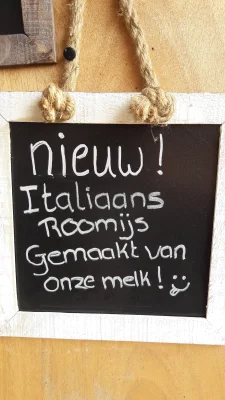 nieuw!
Italiaans
Roomijs
Gemaakt van
onze melk!